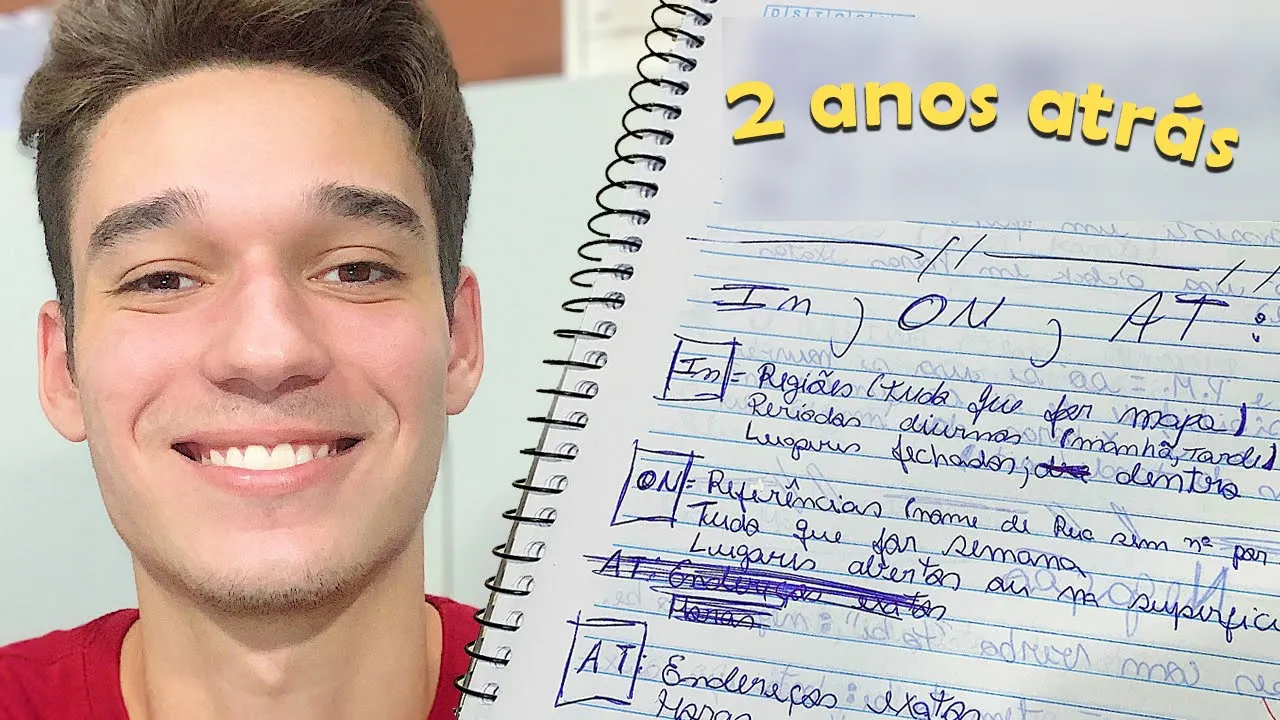 2 anos atrás
In, ON, AT:
In = Regiões (tudo que for mapa)
Períodos diurnos (manhã, Tarde)
Lugares fechados; dentro
ON = Referências (nome de Rua sem nº por
Tudo que for semana
Lugares abertos ou na superfíci
AT: Endereços exatos
Horas
AT: Endereços exatos
Horas